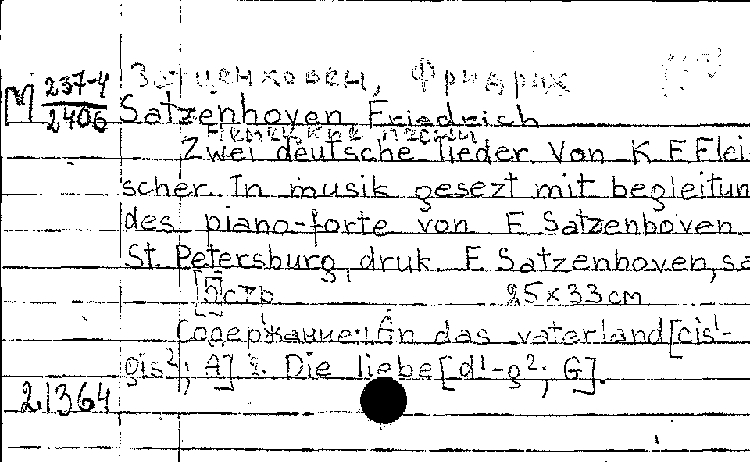 Заценховен, Фридрих
M 237-4
2406
Satzenhoven Friedrich
Немецкие песни
Zwei deutsche lieder. Von K. F. Flei-
scher. In musik gesezt mit begleitun
des piano-forte von F. Satzenhoven
St. Petersburg, druk F. Satzenhoven, sa
[5]стр 25×33 см
Содержание: 1. An das vaterland [cis¹-
gis²; A] 2. Die liebe [d¹-g²; G].
21364